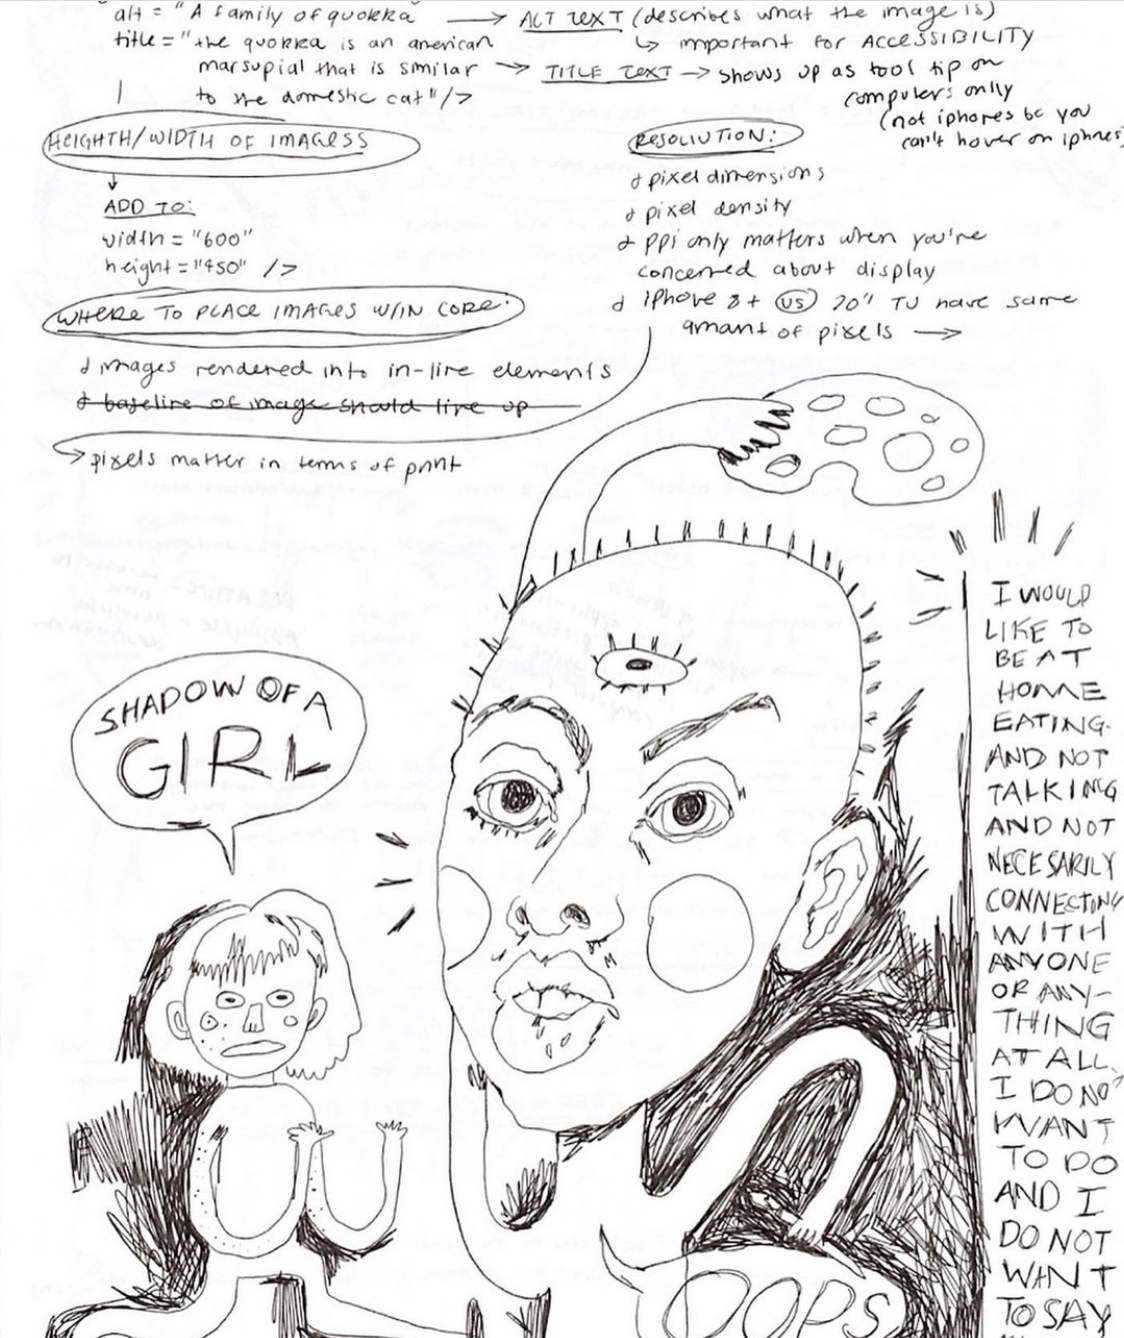 alt = "A family of quokka" → ALT TEXT (describes what the image is)
title = "the quokka is an american
↳ important for ACCESSIBILITY
marsupial that is similar → TITLE TEXT → shows up as tool tip on
to the domestic cat"/>
computers only
(not iphones bc you
can't hover on iphones)
HEIGHTH/WIDTH OF IMAGESS
ADD TO:
width = "600"
height = "450" />
WHERE TO PLACE IMAGES W/IN CODE:
images rendered into in-line elements
baseline of image should line up
RESOLUTION:
pixel dimensions
pixel density
ppi only matters when you're
concerned about display
iphone 8+ (VS) 70" TV have same
amant of pixels →
→ pixels matter in terms of print
SHADOW OF A
GIRL
I WOULD
LIKE TO
BE AT
HOME
EATING.
AND NOT
TALKING
AND NOT
NECESARILY
CONNECTING
WITH
ANYONE
OR ANY-
THING
AT ALL.
I DO NO
WANT
TO DO
AND I
DO NOT
WANT
TO SAY
OOPS